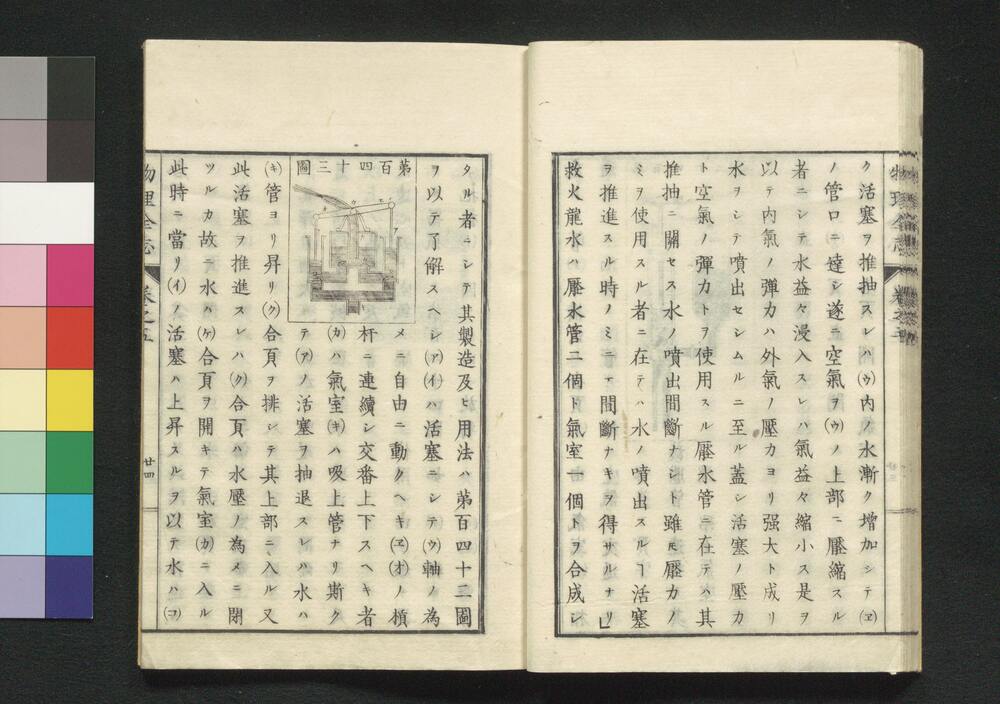 ク活塞ヲ推抽スレハ(ウ)内ノ水漸ク増加シテ(ヱ)
ノ管口ニ達シ遂ニ空氣ヲ(ウ)ノ上部ニ壓縮スル
者ニシテ水益々浸入スレハ氣益々縮小ス是ヲ
以テ内氣ノ弾力ハ外氣ノ壓力ヨリ强大ト成リ
水ヲシテ噴出セシムルニ至ル蓋シ活塞ノ壓力
ト空氣ノ彈力トヲ使用スル壓水管ニ在テハ其
推抽ニ關セス水ノ噴出間斷ナシト雖𪜈壓力ノ
ミヲ使用スル者ニ在テハ水ノ噴出スルヿ活塞
ヲ推進スル時ノミニ乄間斷ナキヲ得サルナリ」
救火龍水ハ壓水管二個ト氣室一個トヲ合成シ
タル者ニシテ其製造及ヒ用法ハ第百四十二圖
ヲ以テ了解スヘシ(ア)(イ)ハ活塞ニシテ(ウ)軸ノ為
第百四十三圖
メニ自由ニ動クヘキ(ヱ)(オ)ノ槓
杆ニ連續シ交番上下スヘキ者
(カ)ハ氣室(キ)ハ吸上管ナリ斯ク
テ(ア)ノ活塞ヲ抽退スレハ水ハ
(キ)管ヨリ昇リ(ク)合頁ヲ排シテ其上部ニ入ル又
此活塞ヲ推進スレハ(ク)合頁ハ水壓ノ為メニ閉
ツルカ故ニ水ハ(ケ)合頁ヲ開キテ氣室(カ)ニ入ル
此時ニ當リ(イ)ノ活塞ハ上昇スルヲ以テ水ハ(コ)
物理全志
卷之五
廿四